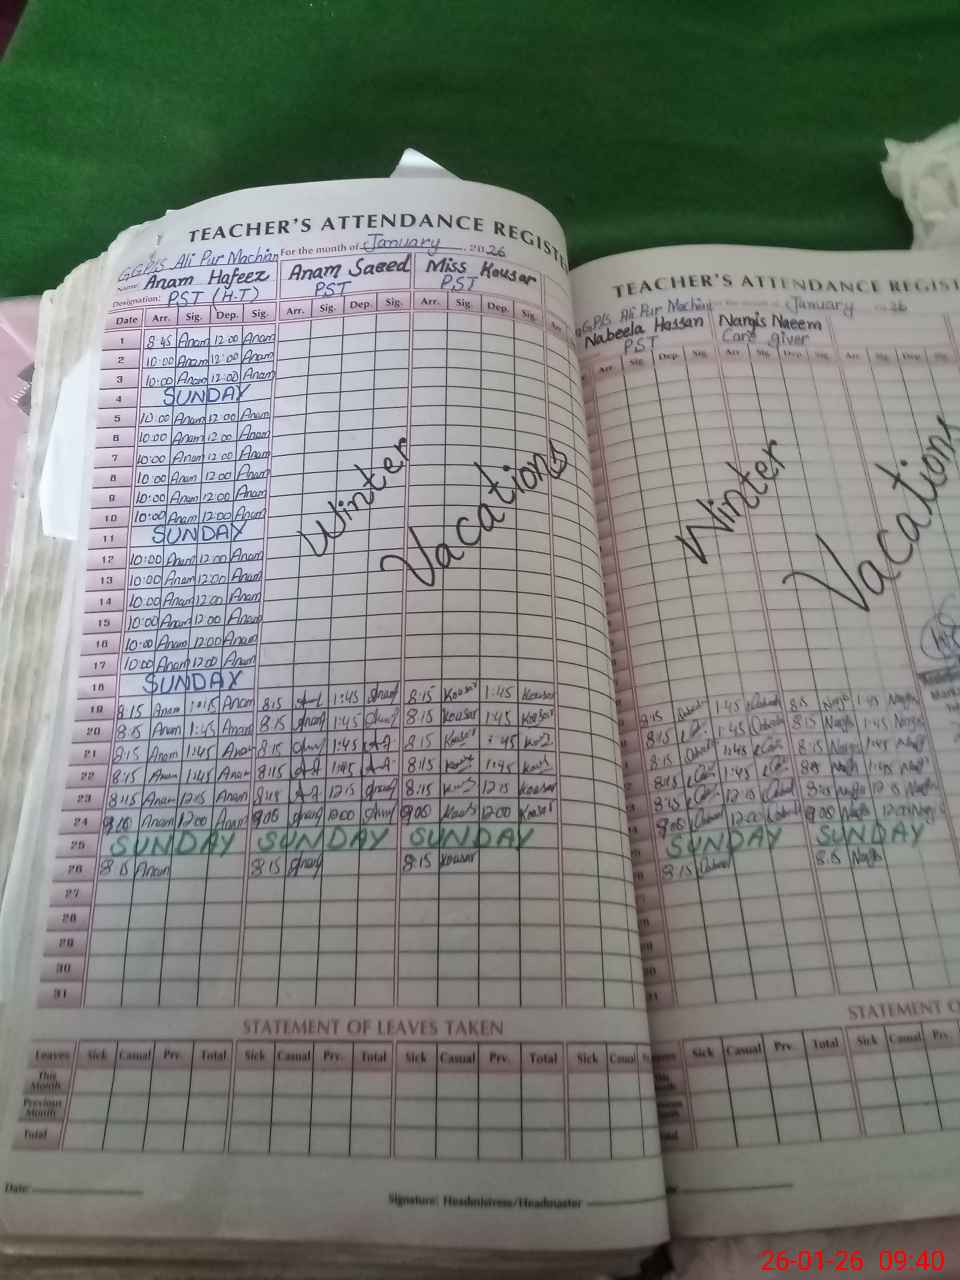 TEACHER'S ATTENDANCE REGISTE
GGP/S Ali Pur Machian For the month of January 2026
Name: Anam Hafeez Anam Saeed Miss Kousar
Designation: PST (H.T) PST PST
Date Arr. Sig. Dep. Sig. Arr. Sig. Dep. Sig. Arr. Sig. Dep. Sig. Arr
1 8:45 Anam 12:00 Anam
2 10:00 Anam 12:00 Anam
3 10:00 Anam 12:00 Anam
4 SUNDAY
5 10:00 Anam 12:00 Anam
6 10:00 Anam 12:00 Anam
7 10:00 Anam 12:00 Anam
8 10:00 Anam 12:00 Anam
9 10:00 Anam 12:00 Anam
10 10:00 Anam 12:00 Anam
11 SUNDAY
12 10:00 Anam 12:00 Anam
13 10:00 Anam 12:00 Anam
14 10:00 Anam 12:00 Anam
15 10:00 Anam 12:00 Anam
16 10:00 Anam 12:00 Anam
17 10:00 Anam 12:00 Anam
18 SUNDAY
Winter
Vacations
19 8:15 Anam Anam 8:15 1:45 8:15 Kousar 1:45 Kousar
20 8:15 Anam 1:45 Anam 8:15 1:45 8:15 Kousar 1:45 Kousar
21 8:15 Anam 1:45 Anam 8:15 1:45 8:15 Kousar 1:45
22 8:15 Anam 1:45 Anam 8:15 1:45 8:15 1:45
23 8:15 Anam 12:15 Anam 8:15 12:15 8:15 12:15 Kousar
24 9:00 Anam 12:00 Anam 9:00 12:00 9:00 12:00 Kousar
25 SUNDAY SUNDAY SUNDAY
26 8:15 Anam 8:15 8:15 Kousar
27
28
29
30
31
STATEMENT OF LEAVES TAKEN
Leaves Sick Casual Prv. Total Sick Casual Prv. Total Sick Casual Prv. Total Sick Casual
This Month
Previous Month
Total
Date:
Signature: Headmistress/Headmaster
TEACHER'S ATTENDANCE REGIST
GGP/S Ali Pur Machian January 26
Nabeela Hassan Nargis Naeem
PST Care giver
Arr Sig. Dep. Sig. Arr Sig. Dep. Sig. Arr. Sig. Dep.
Winter
Vacation
8:15 1:45 8:15 1:45
8:15 1:45 8:15 1:45
8:15 1:45 8:15 Nargis 1:45
8:15 1:45 1:45
8:15 12:15 8:15 12:15
9:00 12:00 9:00 12:00
SUNDAY SUNDAY
8:15 8:15
STATEMENT O
Sick Casual Prv. Total Sick Casual Prv.
26-01-26 09:40